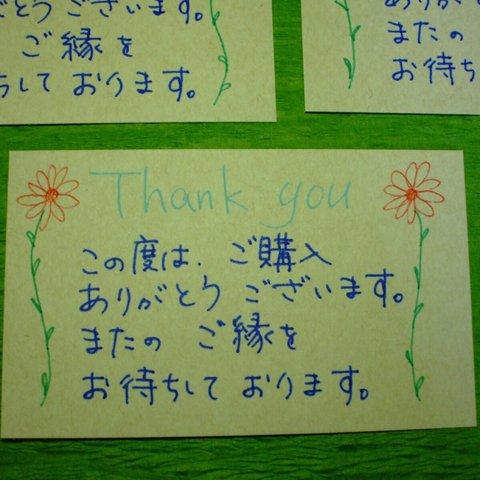 とうございます。
ご縁を
ちしております。
ありが
またの
お待ち
Thank you
この度は、ご購入
ありがとうございます。
またの ご縁を
お待ちしております。